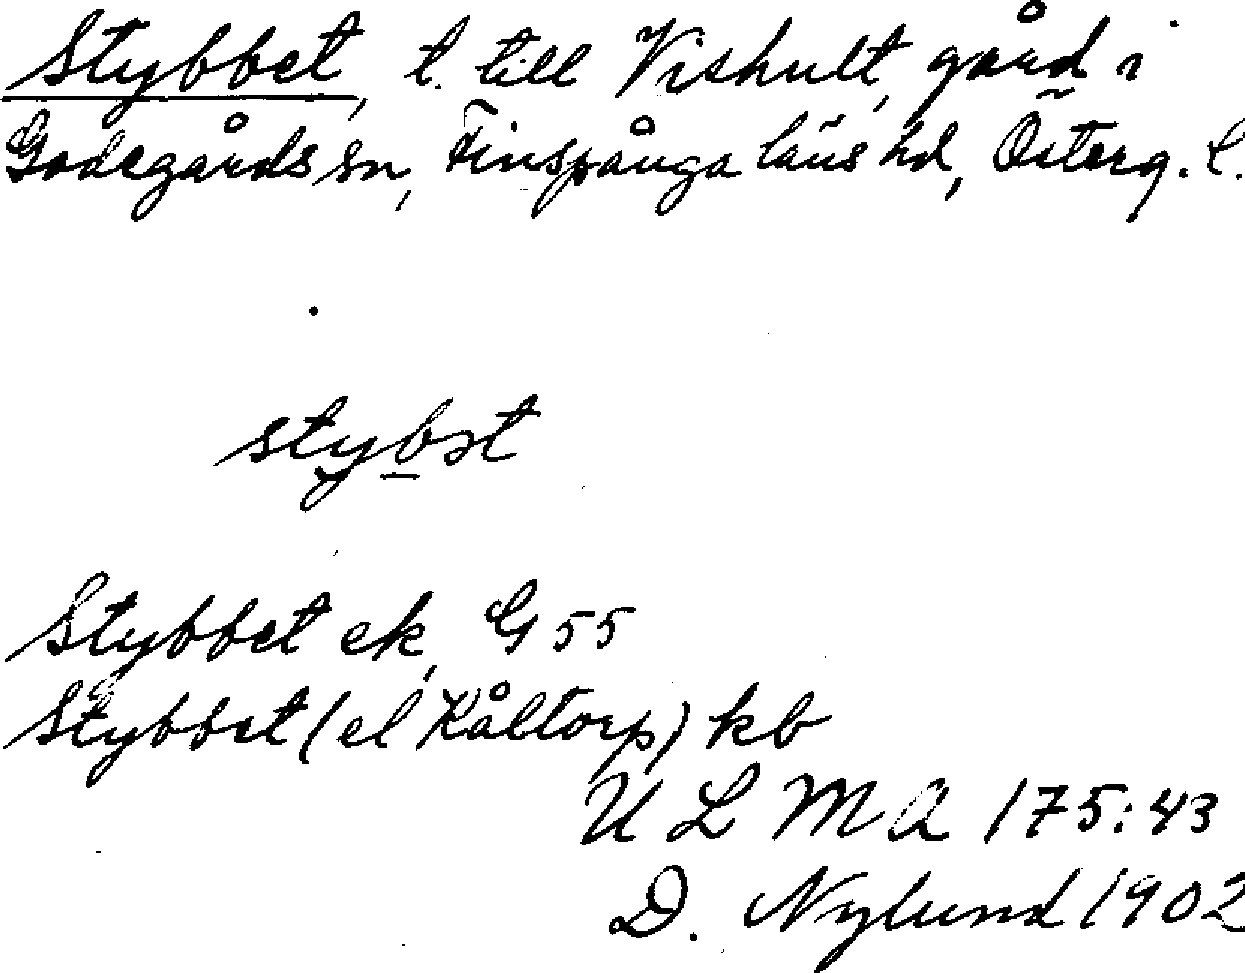 Stybbet, t. till Vishult, gård i
Godegårds sn, Finspånga läns hd, Österg. l.
stybət
Stybbet ek, G 55
Stybbet (el Kåltorp) kb
ULMA 175:43
D. Nylund 1902